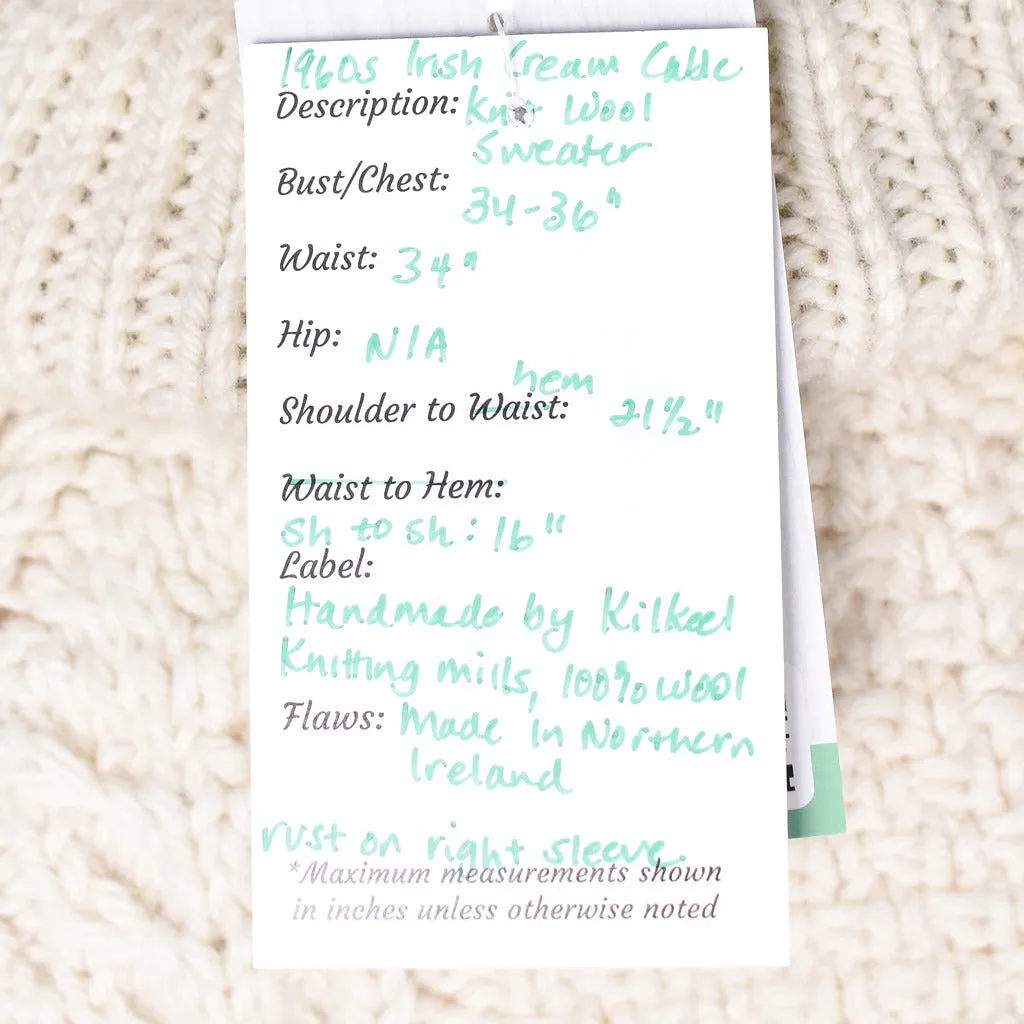 1960s Irish Cream Cable
Description: Knit Wool
Sweater
Bust/Chest: 34-36"
Waist: 34"
Hip: N/A
hem
Shoulder to Waist: 21 1/2"
Waist to Hem:
Sh to sh: 16"
Label:
Handmade by Kilkeel
Knitting mills, 100% wool
Flaws: Made in Northern
Ireland
rust on right sleeve.
*Maximum measurements shown
in inches unless otherwise noted